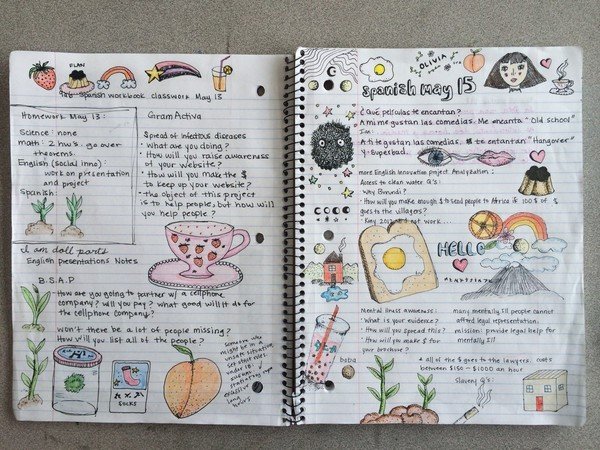 FLAN
Spanish workbook classwork May 13
Homework May 13:
Science: none
math: 2 hw's. go over
theorems.
English (Social Inno):
work on presentation
and project
Spanish:
Gram Activa
Spread of infectious diseases
• what are you doing?
• How will you raise awareness
of your website?
• How will you make the $
to keep up your website?
• the object of this project
is to help people, but how will
you help people?
I am doll parts
English presentations Notes
B.S.A.P
How are you going to partner w/ a cellphone
company? will you pay? what good will it do for
the cellphone company?
Won't there be a lot of people missing?
How will you list all of the people?
someone who
might be in a
unsafe situation
set their rules
under 18:
excessive
long
hours
SOCKS
OLIVIA
Spanish May 15
¿Qué películas te encantan?
A mi me gustan las comedias. Me encanta "Old school"
A ti te gustan las comedias. te encantan "Hangover"
y "Superbad.
more English Innovation project Analyzation:
Access to clean water Q's:
• Why Burundi?
• How will you make enough $ to send people to Africa if 100% of $
goes to the villagers?
Kony 2012 did not work...
HELLO
Mental illness awareness:
• What is your evidence?
• How will you spread this?
• How will you make $ for
your brochure?
many mentally ill people cannot
afford legal representation.
mission: provide legal help for
mentally ill
boba
• all of the $ goes to the lawyers. costs
between $150 - $1000 an hour
Slavery Q's: